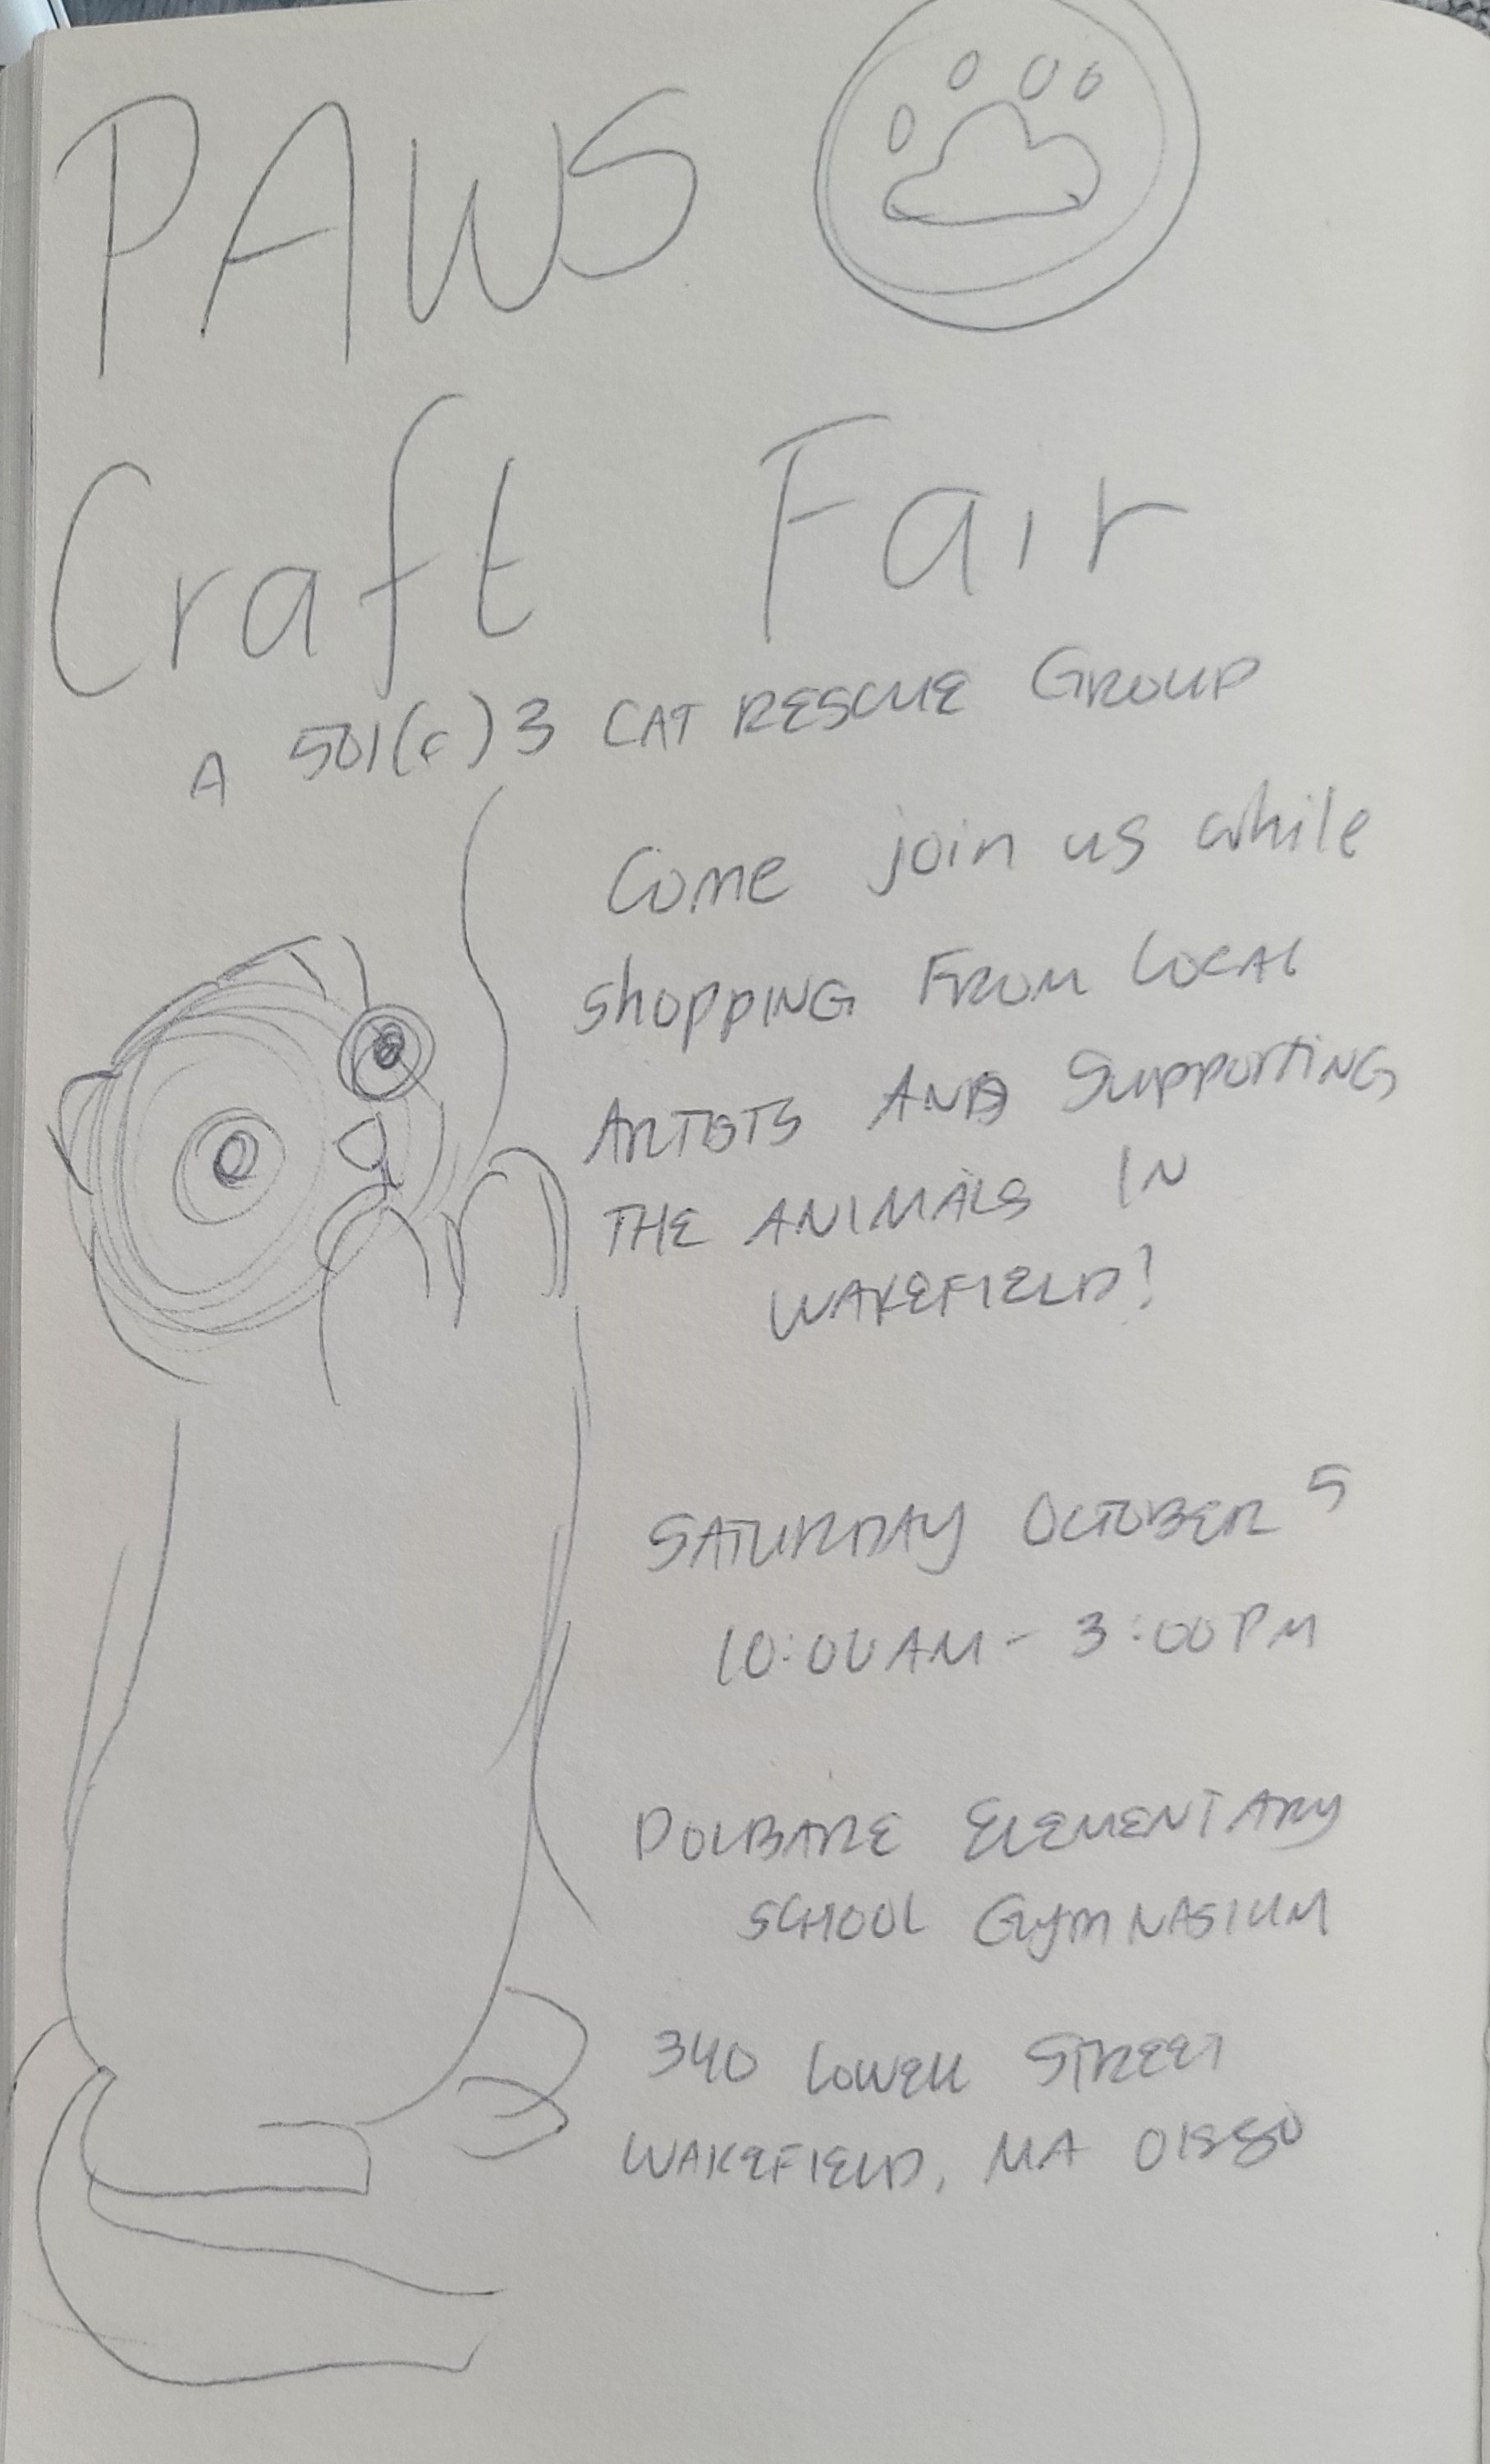 PAWS
Craft Fair
A 501(c)3 CAT RESCUE GROUP
Come join us while
shopping FROM LOCAL
ARTISTS AND Supporting
THE ANIMALS IN
WAKEFIELD!
SATURDAY OCTOBER 5
10:00AM - 3:00PM
DOLBARE ELEMENTARY
SCHOOL GYMNASIUM
340 LOWELL STREET
WAKEFIELD, MA 01880